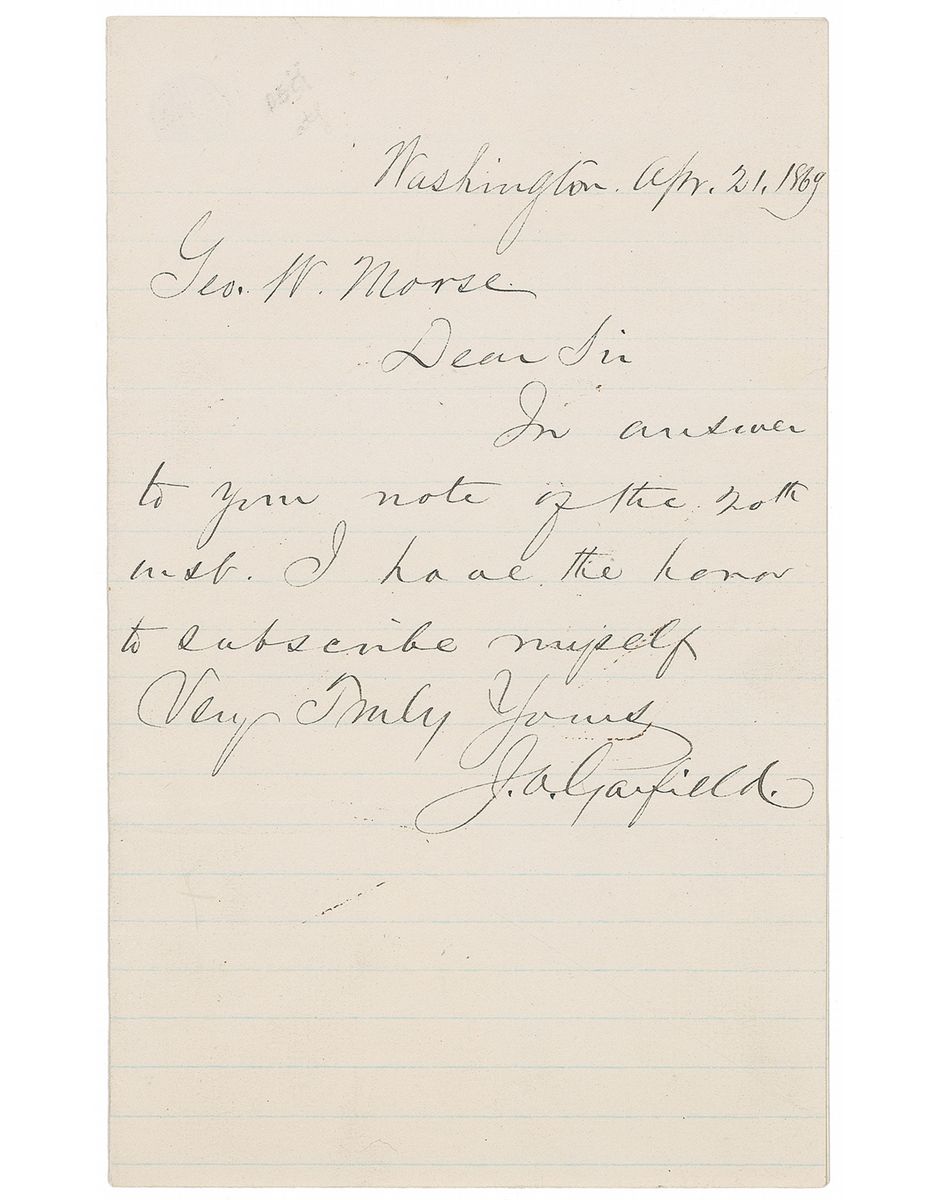 Washington. Apr. 21. 1869
Geo. W. Morse.
Dear Sir
In answer
to your note of the 20th
inst. I have the honor
to subscribe myself
Very Truly Yours
J. A. Garfield.